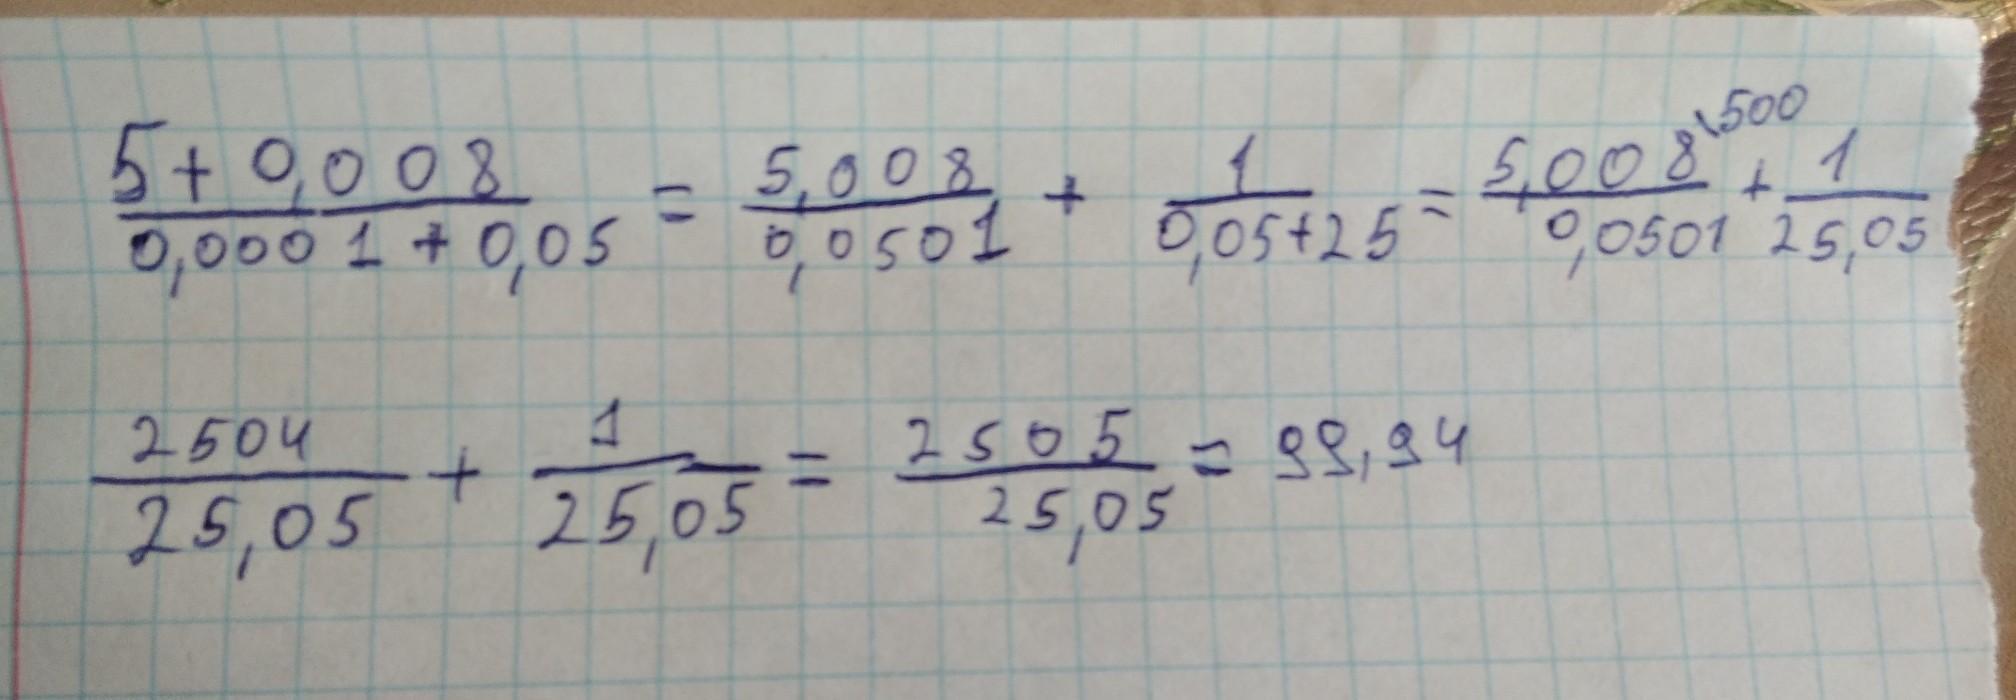 5+0,008/0,0001+0,05 = 5,008/0,0501 + 1/0,05+25 = 5,008\500/0,0501 + 1/25,05
2504/25,05 + 1/25,05 = 2505/25,05 = 99,94